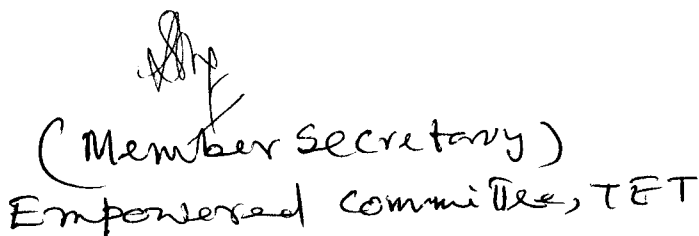 (Member Secretary)
Empowered Committee, TET